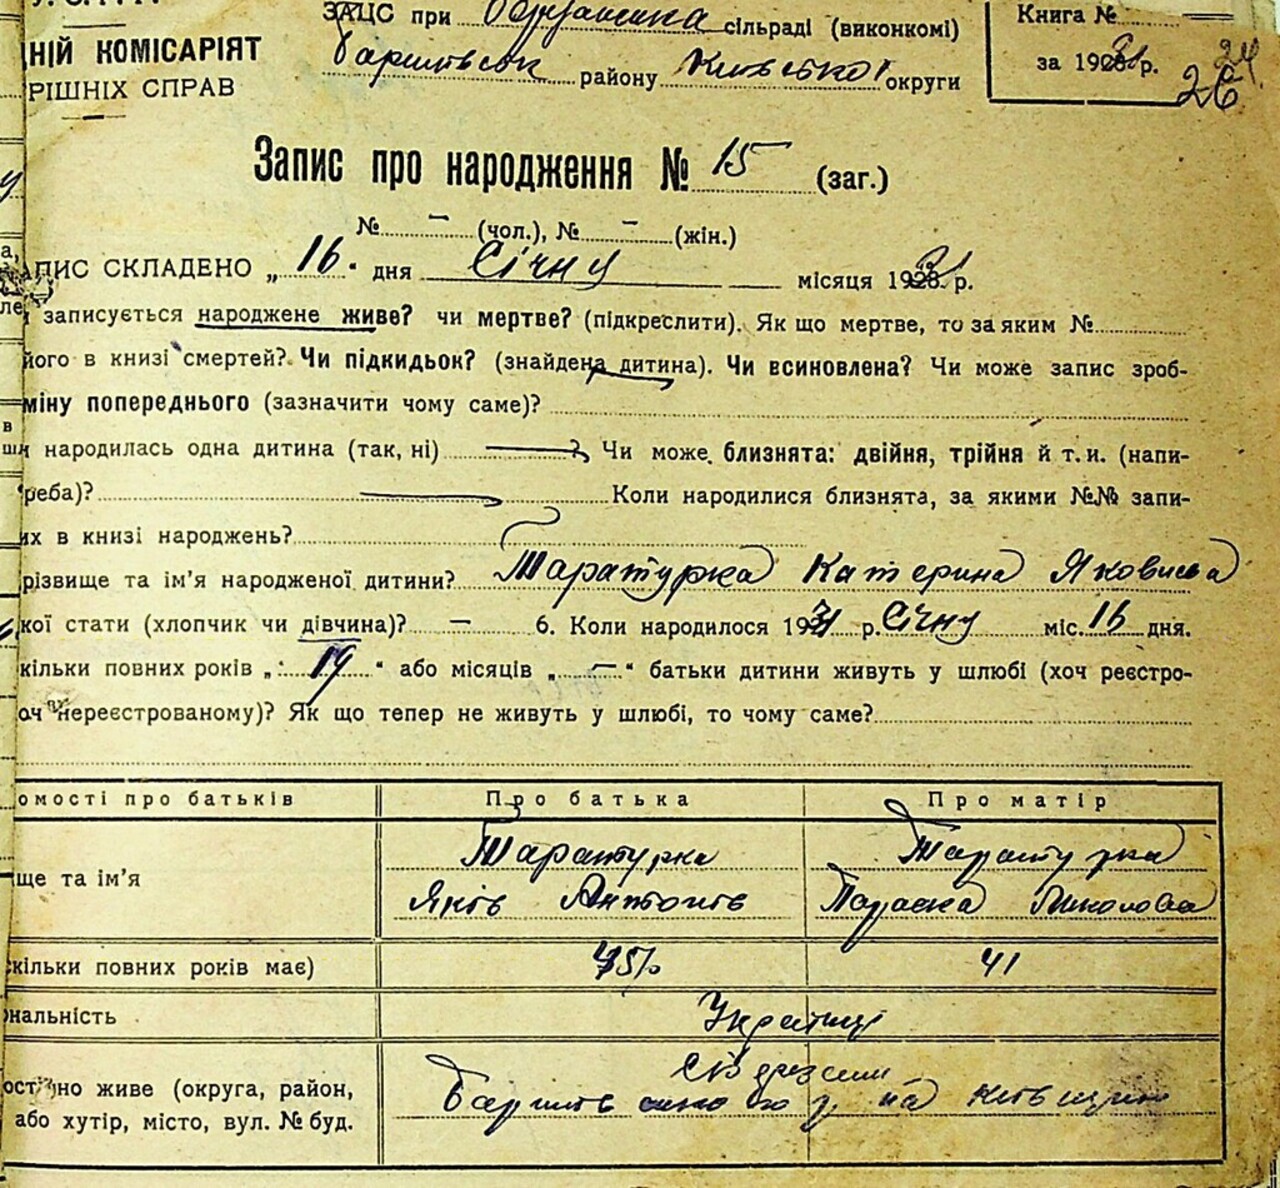 У. С. Р. Р.
НІЙ КОМІСАРІЯТ
РІШНІХ СПРАВ
ЗАЦС при сільраді (виконкомі)
району Київської округи
Книга №
за 1931 р.
24
26
Запис про народження № 15 (заг.)
№ — (чол.), № — (жін.)
АПИС СКЛАДЕНО „16“ дня Січну місяця 1931 р.
записується народжене живе? чи мертве? (підкреслити). Як що мертве, то за яким №
його в книзі смертей? Чи підкидьок? (знайдена дитина). Чи всиновлена? Чи може запис зроб-
міну попереднього (зазначити чому саме)?
и народилась одна дитина (так, ні) Чи може близнята: двійня, трійня й т. и. (напи-
реба)? Коли народилися близнята, за якими №№ запи-
их в книзі народжень?
різвище та ім'я народженої дитини? Таратурка Катерина Яковисва
кої стати (хлопчик чи дівчина)? — 6. Коли народилося 1931 р. Січну міс. 16 дня.
кільки повних років „19“ або місяців „—“ батьки дитини живуть у шлюбі (хоч реєстро-
оч нереєстрованому)? Як що тепер не живуть у шлюбі, то чому саме?
омості про батьків
Про батька
Про матір
ще та ім'я
Таратурка
Яків Антонів
Таратурка
Параска Миколова
скільки повних років має)
45
41
ональність
Українці
остійно живе (округа, район,
або хутір, місто, вул. № буд.
на Київщині